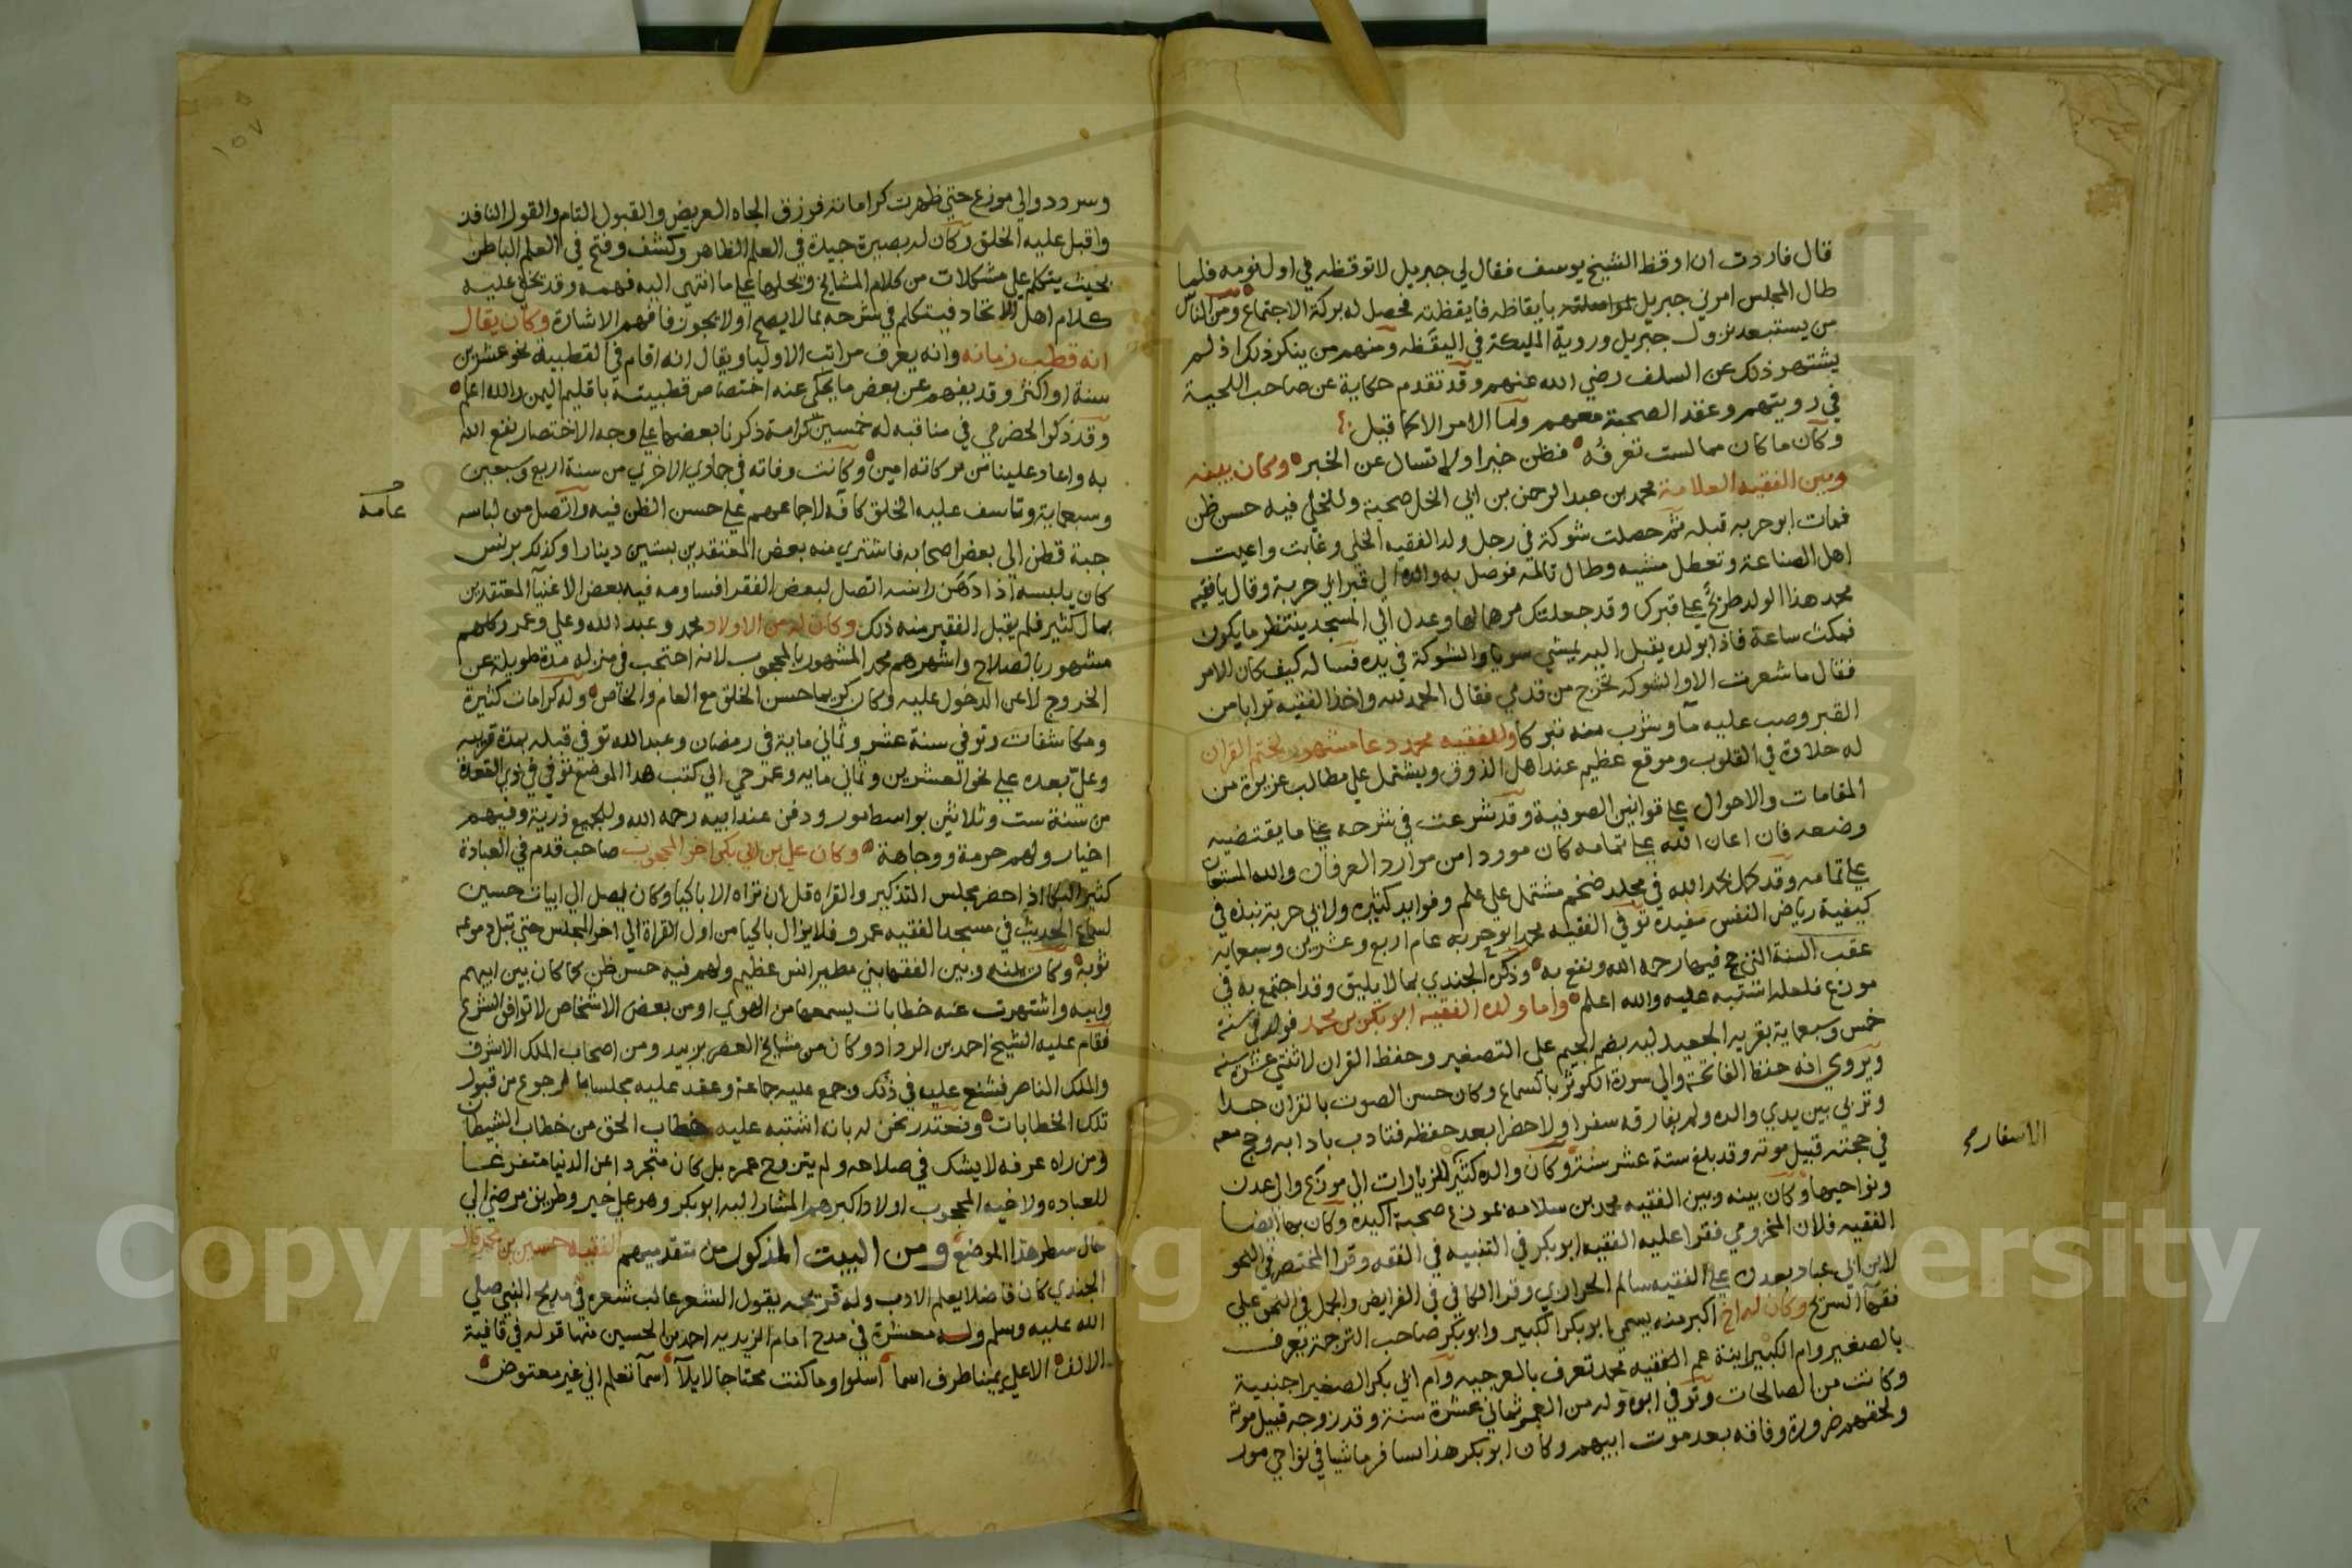 قال فاردت ان اوقظ الشيخ يوسف فقال لي جبريل لا توقظه في اول نومه فلما
طال المجلس امرني جبريل بايقاظه فايقظته فحصل له بركة الاجتماع ومن الناس
من يستبعد نزول جبريل وروية المليكة في اليقظه ومنهم من ينكر ذلك اذ لم
يشتهر ذلك عن السلف رضي الله عنهم وقد تقدم حكاية عن صاحب اللحية
في رويتهم وعقد الصحبة معهم وانما الامر الا كما قيل
وكان ما كان مما لست تعرفه فظن خيرا ولا تسال عن الخبر وكان بينه
وبين الفقيه العلامة محمد بن عبد الرحمن بن ابي الخل صحبة وللخلي فيه حسن ظن
فمات ابو حربه قبله ثم حصلت شوكة في رجل ولد الفقيه الخلي وغابت واعيت
اهل الصناعة وتعطل مشيه وطال تالمه فوصل به والده الي قبر ابي حربة وقال يا فقيه
محمد هذا الولد طريح علي قبرك وقد جعلتك مرهما لها وعدل الي المسجد ينتظر ما يكون
فمكث ساعة فاذا بولده يقبل اليه يمشي سويا والشوكة في يده فساله كيف كان الامر
فقال ما شعرت الا والشوكه تخرج من قدمي فقال الحمد لله واخذ الفقيه ترابا من
القبر وصب عليه ما وشرب منه تبركا وللفقيه محمد دعا مشهور لختم القران
له حلاوة في القلوب وموقع عظيم عند اهل الذوق ويشتمل علي مطالب عزيزة من
المقامات والاحوال علي قوانين الصوفية وقد شرعت في شرحه علي ما يقتضيه
وضعه فان اعان الله علي تمامه كان موردا من موارد العرفان والله المستعان
علي تمامه وقد كمل بحمد الله في مجلد ضخم مشتمل علي علم وفوايد كثيره ولابي حربة نبذة في
كيفية رياض النفس مفيدة توفي الفقيه محمد ابو حربه عام اربع وعشرين وسبعمايه
عقب السنة التي حج فيها رحمه الله ونفع به وذكره الجندي بما لا يليق وقد اجتمع به في
موزع فلعله اشتبه عليه والله اعلم واما ولده الفقيه ابو بكر بن محمد فولد في سنة
خمس وسبعماية بقريه الجعيدليه بضم الجيم علي التصغير وحفظ القران لاثنتي عشرة سنه
ويروي انه حفظ الفاتحة والي سورة الكوثر بالسماع وكان حسن الصوت بالقران جدا
وتربي بين يدي والده ولم يفارقه سفرا ولا حضرا بعد حفظه فتادب بادابه وحج معه
في حجته قبيل موته وقد بلغ ستة عشر سنة وكان والده كثير الزيارات الي موزع والي عدن
الاسفار
ونواحيها وكان بينه وبين الفقيه محمد بن سلامه بموزع صحبة اكيدة وكان بها ايضا
الفقيه فلان المخزومي فقرا عليه الفقيه ابو بكر في التنبيه في الفقه وقرا المختصر في النحو
لابن ابي عباد بعدن علي الفقيه سالم الحرازي وقرا الكافي في الفرايض والجمل في النحو علي
فقها السريح وكان له اخ اكبر منه يسمي ابو بكر الكبير وابو بكر صاحب الترجمة يعرف
بالصغير وام الكبير ابنة عم الفقيه محمد تعرف بالعرجيه وام ابي بكر الصغير اجنبية
وكانت من الصالحات وتوفي ابوه وله من العمر ثماني عشرة سنة وقد زوجه قبيل موته
ولحقهم ضرورة وفاقه بعد موت ابيهم وكان ابو بكر هذا يسافر ماشيا في نواحي مور
١٥٧
وسردد والي موزع حتي ظهرت كراماته فرزق الجاه العريض والقبول التام والقول النافذ
واقبل عليه الخلق وكان له بصيرة جيدة في العلم الظاهر وكشف وفتح في العلم الباطن
بحيث يتكلم علي مشكلات من كلام المشايخ ويحلها علي ما انتهي اليه فهمه وقد تخفي عليه
كلام اهل الاتحاد فيتكلم في شرحه بما لا يصح او لا يجوز فافهم الاشارة وكان يقال
انه قطب زمانه وانه يعرف مراتب الاوليا ويقال انه اقام في القطبية نحو عشرين
سنة او اكثر وقد يفهم عن بعض ما يحكي عنه اختصاص قطبيته باقليم اليمن والله اعلم
وقد ذكر الحضرمي في مناقبه له خمسين كرامة ذكرنا بعضها علي وجه الاختصار نفع الله
به واعاد علينا من بركاته امين وكانت وفاته في جمادي الاخري من سنة اربع وسبعين
وسبعماية وتاسف عليه الخلق كافه لاجماعهم علي حسن الظن فيه واتصل من لباسه
عامه
جبة قطن الي بعض اصحابه فاشتري منه بعض المعتقدين بستين دينارا وكذلك برنس
كان يلبسه اذا دهن راسه اتصل لبعض الفقرا فساومه فيه بعض الاغنيا المعتقدين
بمال كثير فلم يقبل الفقير منه ذلك وكان له من الاولاد محمد وعبد الله وعلي وعمر وكلهم
مشهور بالصلاح واشهرهم محمد المشهور بالمحجوب لانه احتجب في منزله مدة طويلة عن
الخروج لا عن الدخول عليه وكان كريما حسن الخلق مع العام والخاص وله كرامات كثيرة
ومكاشفات وتوفي سنة عشر وثماني ماية في رمضان وعبد الله توفي قبله بمدة قريبه
وعلي بعده علي نحو العشرين وثماني مايه وعمر حي الي كتب هذا الموضع توفي في ذي القعدة
من سنة ست وثلاثين بواسط مور ودفن عند ابيه رحمه الله وللجميع ذرية وفيهم
اخيار ولهم حرمة ووجاهة وكان علي بن ابي بكر اخو المحجوب صاحب قدم في العبادة
كثير البكا اذا حضر مجلس التذكير والقراه قل ان تراه الا باكيا وكان يصل الي ابيات حسين
لسماع الحديث في مسجد الفقيه عمر و فلا يزال باكيا من اول القراة الي اخر المجلس حتي تبل دموعه
ثوبه وكان بينه وبين الفقها بني مطير انس عظيم ولهم فيه حسن ظن كما كان بين ابيهم
وابيه واشتهرت عنه خطابات يسمعها من الهوي او من بعض الاشخاص لا توافق الشرع
فقام عليه الشيخ احمد بن الرداد وكان من مشايخ العصر بزبيد ومن اصحاب الملك الاشرف
والملك الناصر فشنع عليه في ذلك وجمع عليه جماعة وعقد عليه مجلسا بالرجوع من قبول
تلك الخطابات ونعتذر نحن له بانه اشتبه عليه خطاب الحق من خطاب الشيطان
ومن راه عرفه لا يشك في صلاحه ولم يتزوج عمره بل كان متجردا عن الدنيا متفرغا
للعباده ولاخيه المحجوب اولاد اكبرهم المشار اليه ابو بكر وهو علي خير وطريق مرضي الي
حال سطر هذا الموضع ومن البيت المذكور من متقدميهم الفقيه حسين بن محمد قال
الجندي كان فاضلا بعلم الادب وله قريحه بقول الشعر غالب شعره في مديح النبي صلي
الله عليه وسلم وله معشرة في مدح امام الزيديه احمد بن الحسين منها قوله في قافية
الالف الا علي يمينا طرف اسما اسلوا وما كنت محتاجا لايلا اسما تعلم اني غير معتوض